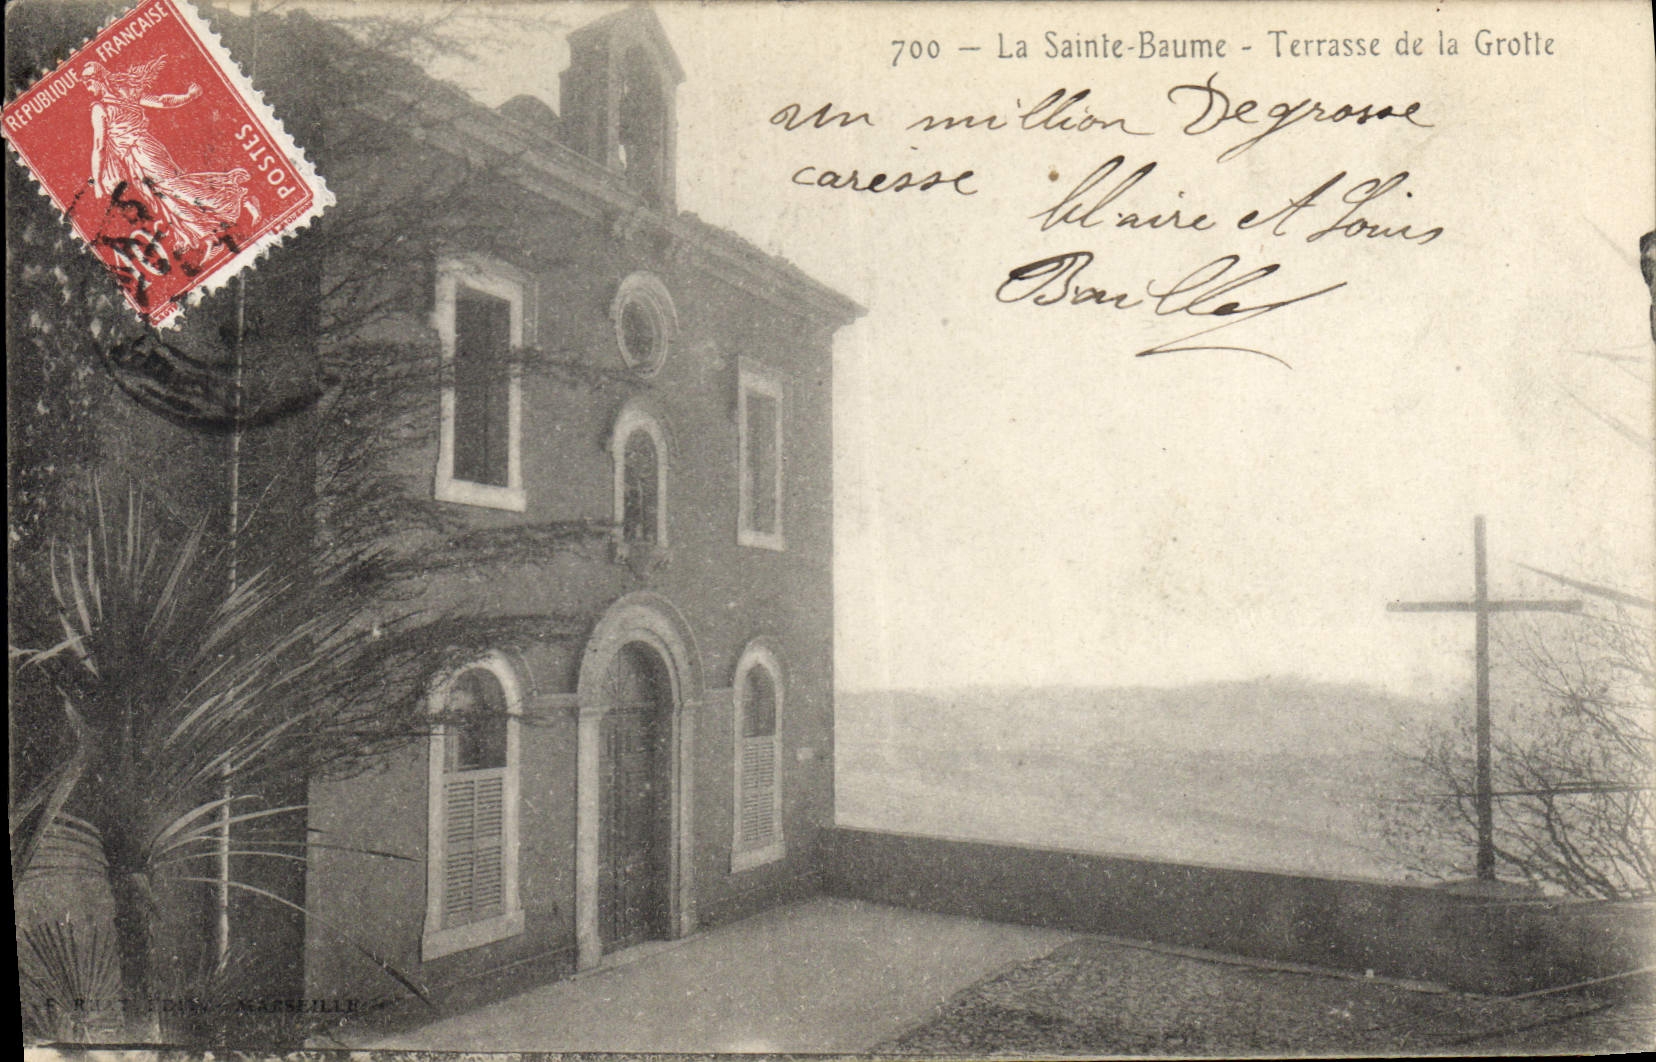 700 — La Sainte-Baume - Terrasse de la Grotte
un million De grosse
caresse
Claire et Louis
RÉPUBLIQUE FRANÇAISE
POSTES
10
MARSEILLE